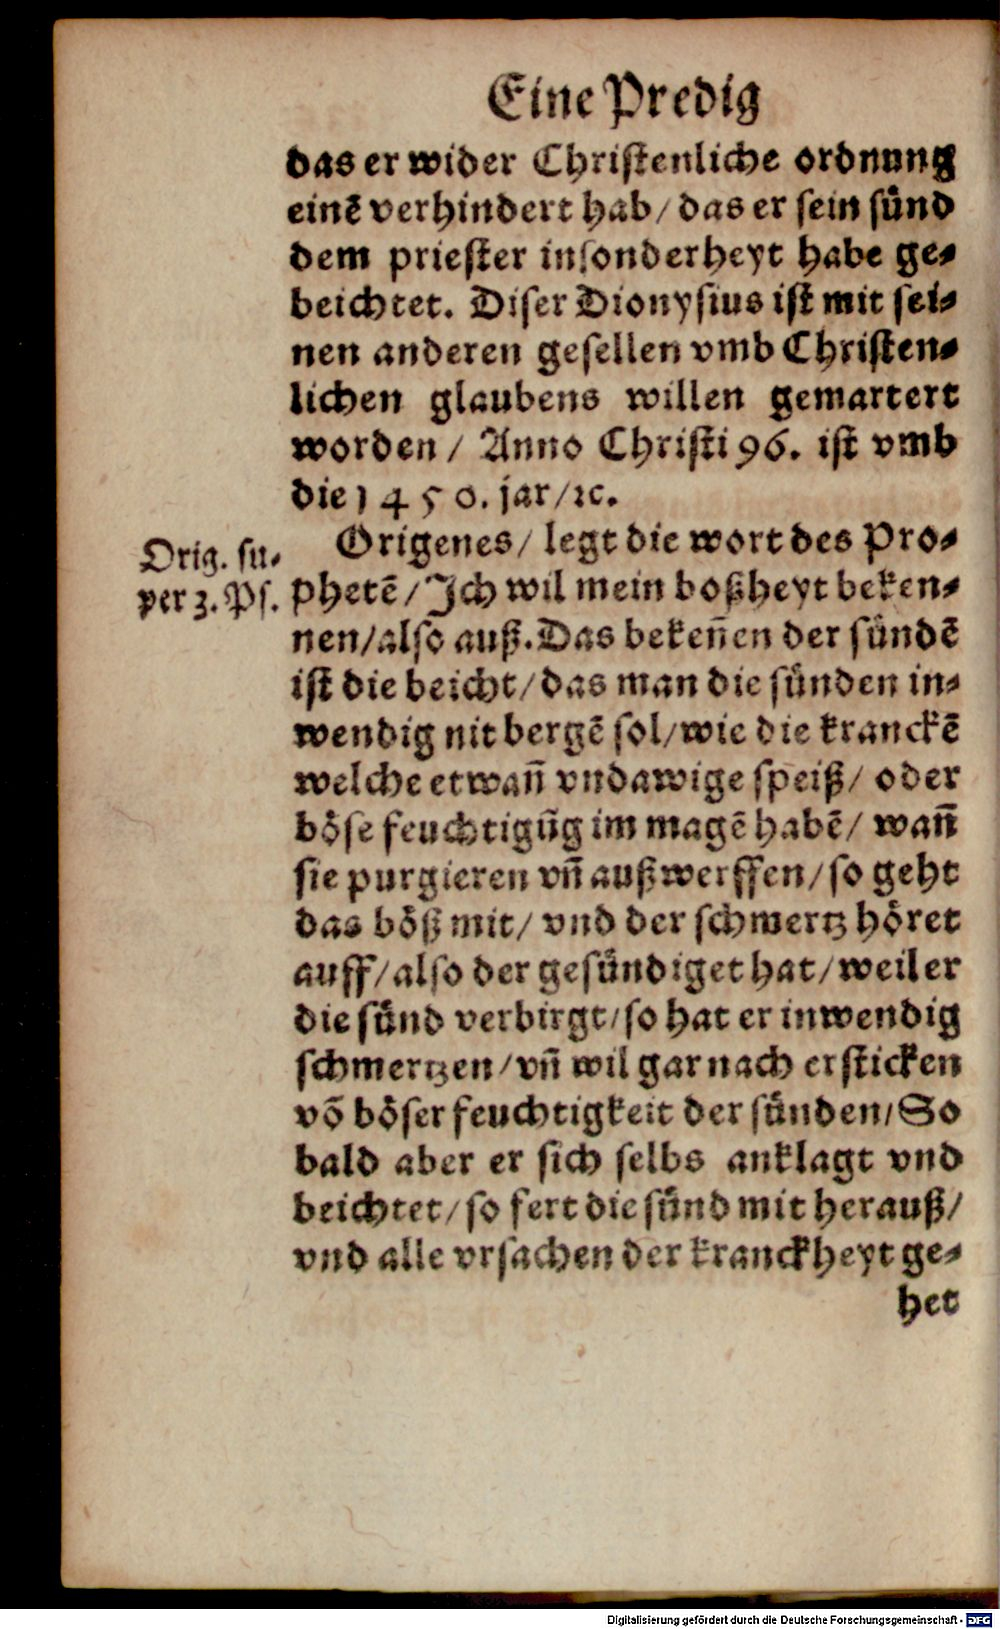 Eine Predig
das er wider Christenliche ordnung
einē verhindert hab / das er sein sünd
dem priester insonderheyt habe ge-
beichtet. Diser Dionysius ist mit sei-
nen anderen gesellen vmb Christen-
lichen glaubens willen gemartert
worden / Anno Christi 96. ist vmb
die 1450. jar / ꝛc.
Orig. su-
per 3. Ps.
Origenes / legt die wort des Pro-
phetē / Ich wil mein boßheyt beken-
nen / also auß. Das bekeñen der sündē
ist die beicht / das man die sünden in-
wendig nit bergē sol / wie die kranckē
welche etwañ vndawige speiß / oder
böse feuchtigūg im magē habē / wañ
sie purgieren vñ außwerffen / so geht
das böß mit / vnd der schmertz höret
auff / also der gesündiget hat / weil er
die sünd verbirgt / so hat er inwendig
schmertzen / vñ wil gar nach ersticken
võ böser feuchtigkeit der sünden / So
bald aber er sich selbs anklagt vnd
beichtet / so fert die sünd mit herauß /
vnd alle vrsachen der kranckheyt ge-
het
Digitalisierung gefördert durch die Deutsche Forschungsgemeinschaft - DFG